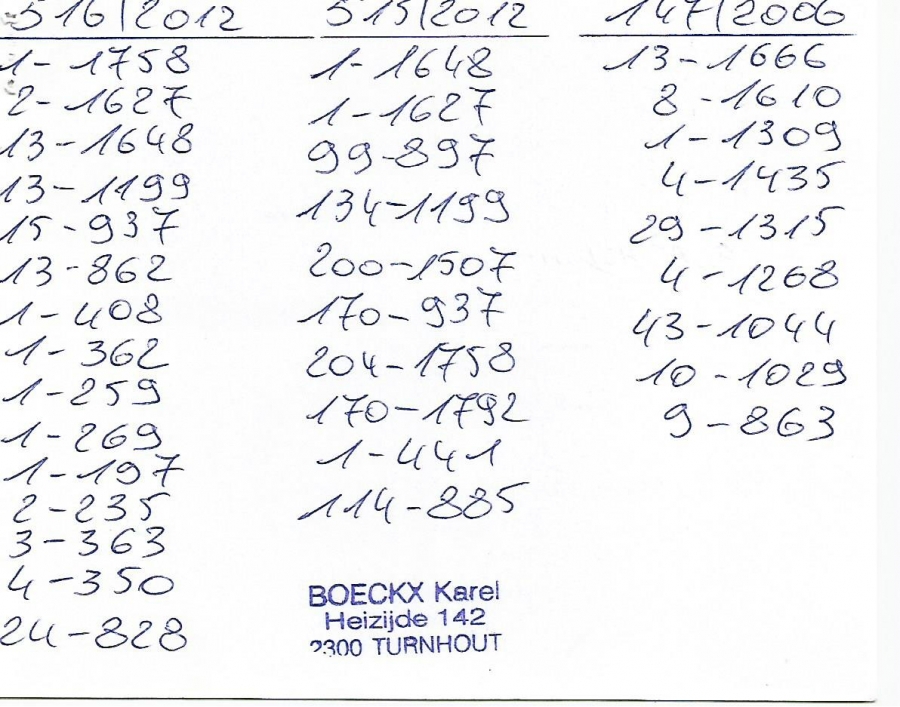 516/2012
1-1758
2-1627
13-1648
13-1199
15-937
13-862
1-408
1-362
1-259
1-269
1-197
2-235
3-363
4-350
24-828
515/2012
1-1648
1-1627
99-897
134-1199
200-1507
170-937
204-1758
170-1792
1-441
114-885
147/2006
13-1666
8-1610
1-1309
4-1435
29-1315
4-1268
43-1044
10-1029
9-863
BOECKX Karel
Heizijde 142
2300 TURNHOUT